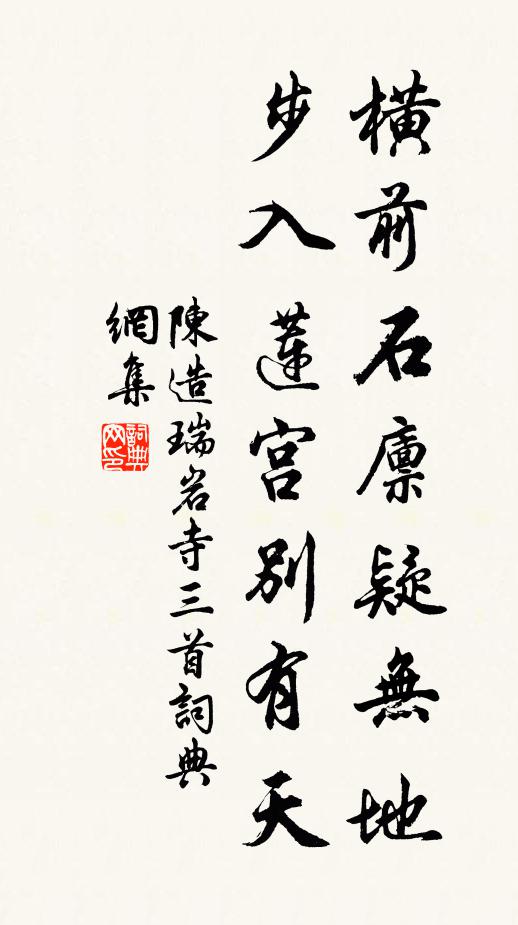 橫前石廪疑無地
步入蓮宮別有天
陳造瑞岩寺三首詞典
網集
詞典
网印